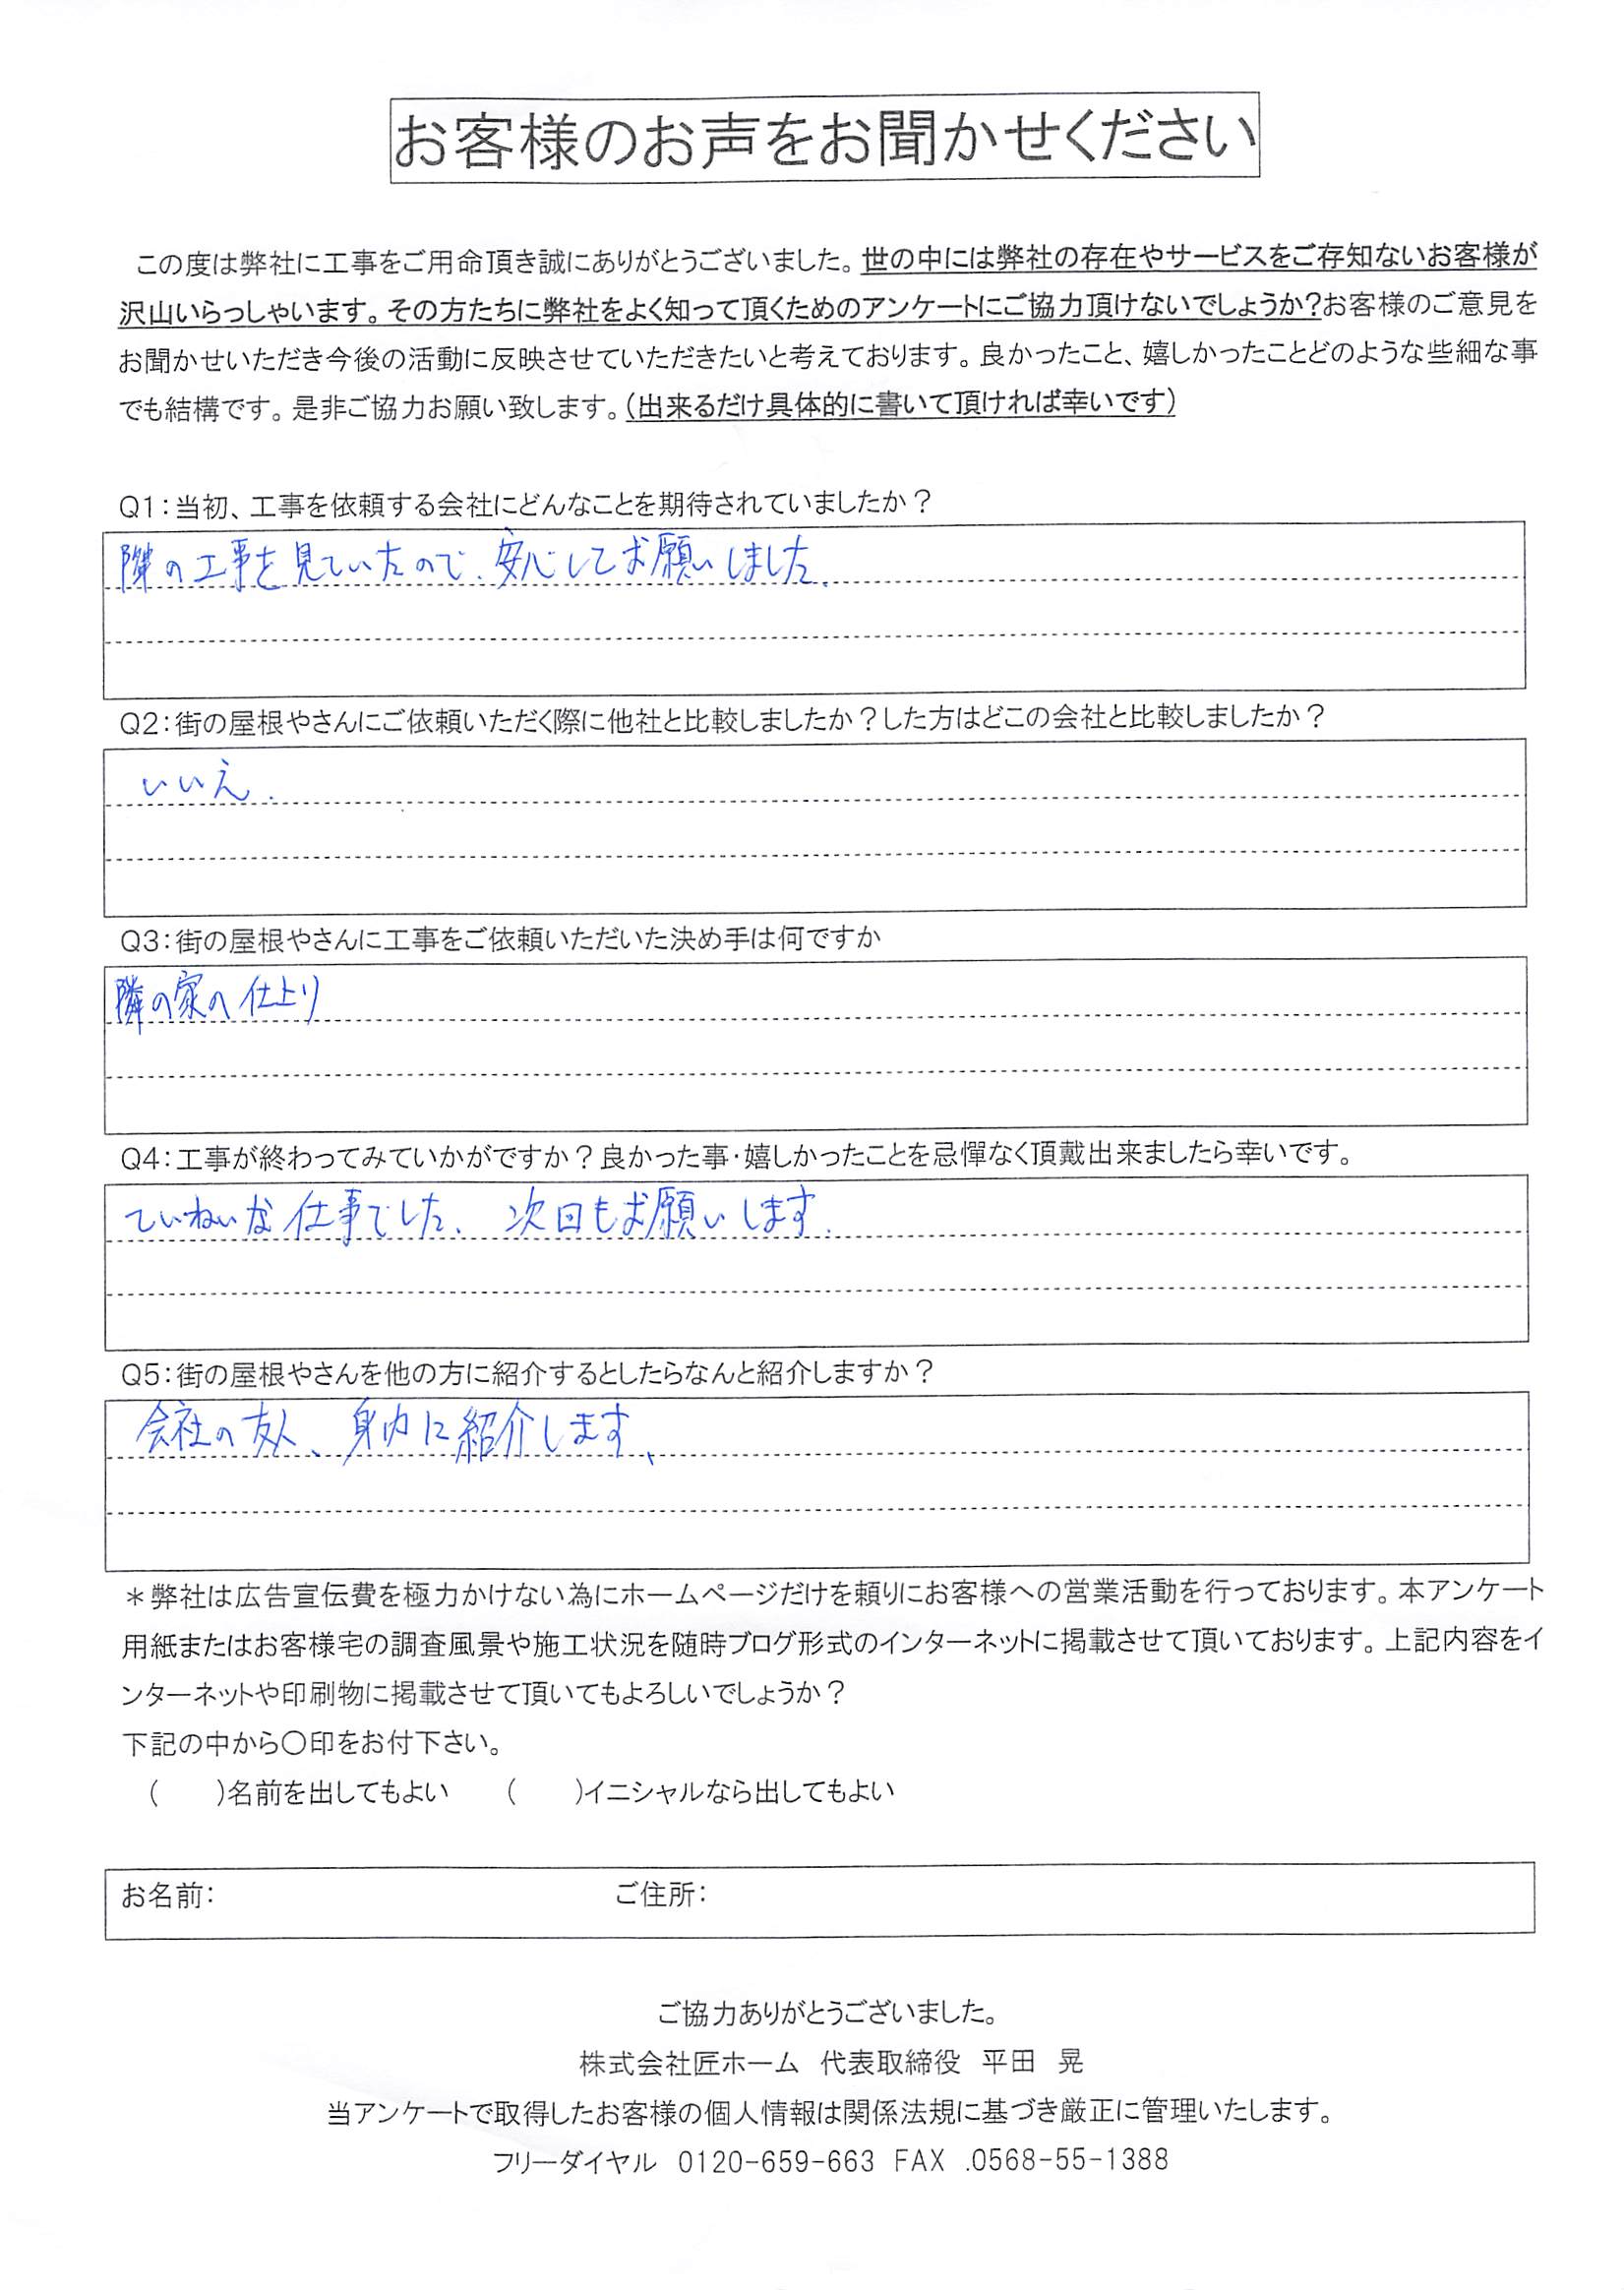 お客様のお声をお聞かせください
この度は弊社に工事をご用命頂き誠にありがとうございました。世の中には弊社の存在やサービスをご存知ないお客様が
沢山いらっしゃいます。その方たちに弊社をよく知って頂くためのアンケートにご協力頂けないでしょうか?お客様のご意見を
お聞かせいただき今後の活動に反映させていただきたいと考えております。良かったこと、嬉しかったことどのような些細な事
でも結構です。是非ご協力お願い致します。(出来るだけ具体的に書いて頂ければ幸いです)
Q1:当初、工事を依頼する会社にどんなことを期待されていましたか?
隣の工事を見ていたので、安心してお願いしました.
Q2:街の屋根やさんにご依頼いただく際に他社と比較しましたか?した方はどこの会社と比較しましたか?
いいえ.
Q3:街の屋根やさんに工事をご依頼いただいた決め手は何ですか
隣の家の仕上り
Q4:工事が終わってみていかがですか?良かった事・嬉しかったことを忌憚なく頂戴出来ましたら幸いです。
ていねいな仕事でした、次回もお願いします.
Q5:街の屋根やさんを他の方に紹介するとしたらなんと紹介しますか?
会社の友人、身内に紹介します、
*弊社は広告宣伝費を極力かけない為にホームページだけを頼りにお客様への営業活動を行っております。本アンケート
用紙またはお客様宅の調査風景や施工状況を随時ブログ形式のインターネットに掲載させて頂いております。上記内容をイ
ンターネットや印刷物に掲載させて頂いてもよろしいでしょうか?
下記の中から○印をお付下さい。
(　　)名前を出してもよい　　(　　)イニシャルなら出してもよい
お名前:　　ご住所:
ご協力ありがとうございました。
株式会社匠ホーム　代表取締役　平田　晃
当アンケートで取得したお客様の個人情報は関係法規に基づき厳正に管理いたします。
フリーダイヤル　0120-659-663　FAX　.0568-55-1388